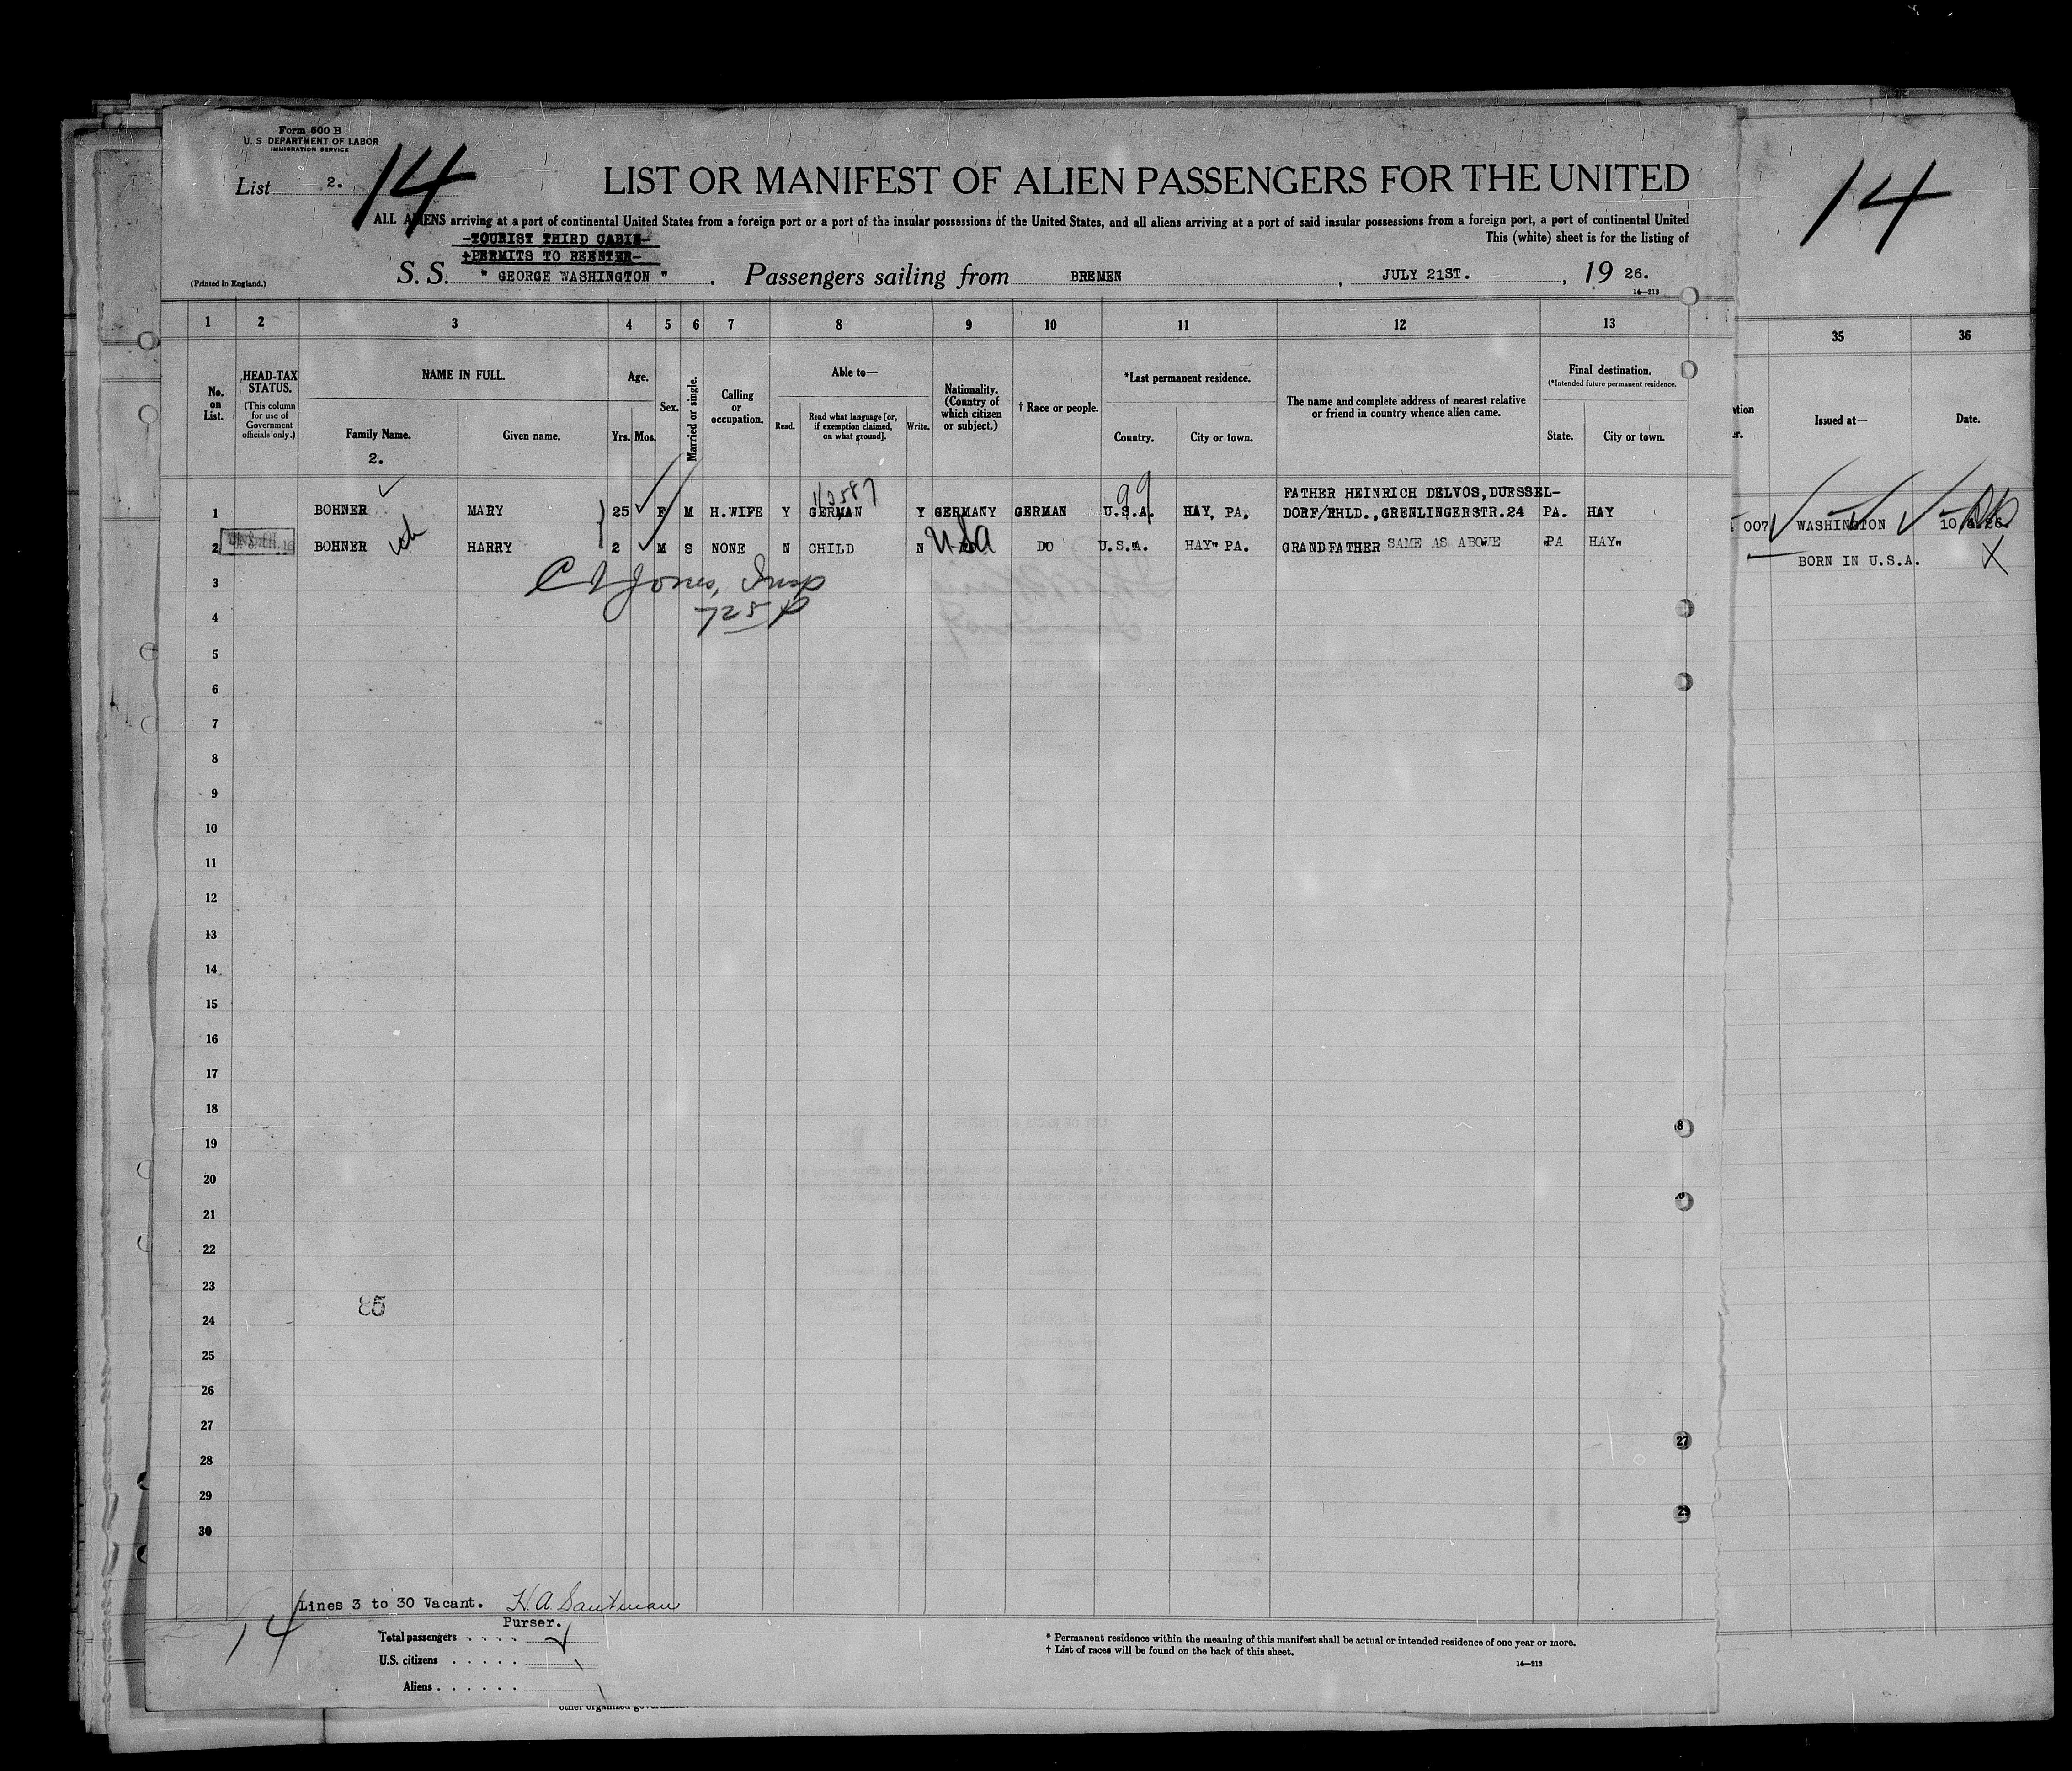 Form 500 B
U. S DEPARTMENT OF LABOR
IMMIGRATION SERVICE
List 2. 14
LIST OR MANIFEST OF ALIEN PASSENGERS FOR THE UNITED
14
ALL ALIENS arriving at a port of continental United States from a foreign port or a port of the insular possessions of the United States, and all aliens arriving at a port of said insular possessions from a foreign port, a port of continental United
-TOURIST THIRD CABIN-
This (white) sheet is for the listing of
+PERMITS TO REENTER-
(Printed in England.)
S. S. " GEORGE WASHINGTON " . Passengers sailing from BREMEN , JULY 21ST. , 19 26.
14—213
1 2 3 4 5 6 7 8 9 10 11 12 13 35 36
No. on List.
HEAD-TAX STATUS.
(This column for use of Government officials only.)
NAME IN FULL.
Family Name.
2.
Given name.
Age.
Yrs. Mos.
Sex.
Married or single.
Calling or occupation.
Able to—
Read.
Read what language [or, if exemption claimed, on what ground].
Write.
Nationality. (Country of which citizen or subject.)
† Race or people.
*Last permanent residence.
Country.
City or town.
The name and complete address of nearest relative or friend in country whence alien came.
Final destination.
(*Intended future permanent residence.
State.
City or town.
Issued at—
Date.
112587
99
FATHER HEINRICH DELVOS,DUESSEL-
1 BOHNER MARY 25 F M H.WIFE Y GERMAN Y GERMANY GERMAN U.S.A. HAY, PA. DORF/RHLD.,GRENLINGERSTR.24 PA. HAY
007 WASHINGTON
2 BOHNER HARRY 2 M S NONE N CHILD N USA DO U.S.A. HAY" PA. GRANDFATHER SAME AS ABOVE "PA HAY"
BORN IN U.S.A. X
3
4
5
6
7
8
9
10
11
12
13
14
15
16
17
18
19
20
21
22
23
85
24
25
26
27
28
29
30
8
27
29
Lines 3 to 30 Vacant.
Purser.
14
Total passengers
U.S. citizens
Aliens
* Permanent residence within the meaning of this manifest shall be actual or intended residence of one year or more.
† List of races will be found on the back of this sheet.
14—213